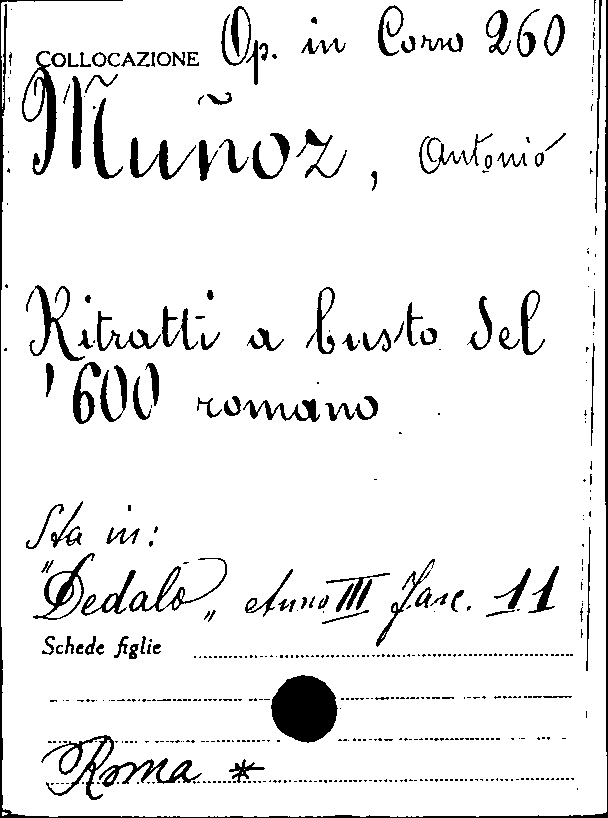 COLLOCAZIONE Op. in Corso 260
Muñoz, Antonio
Ritratti a busto del
'600 romano
Sta in:
"Dedalo„ Anno III Fasc. 11
Schede figlie
Roma *